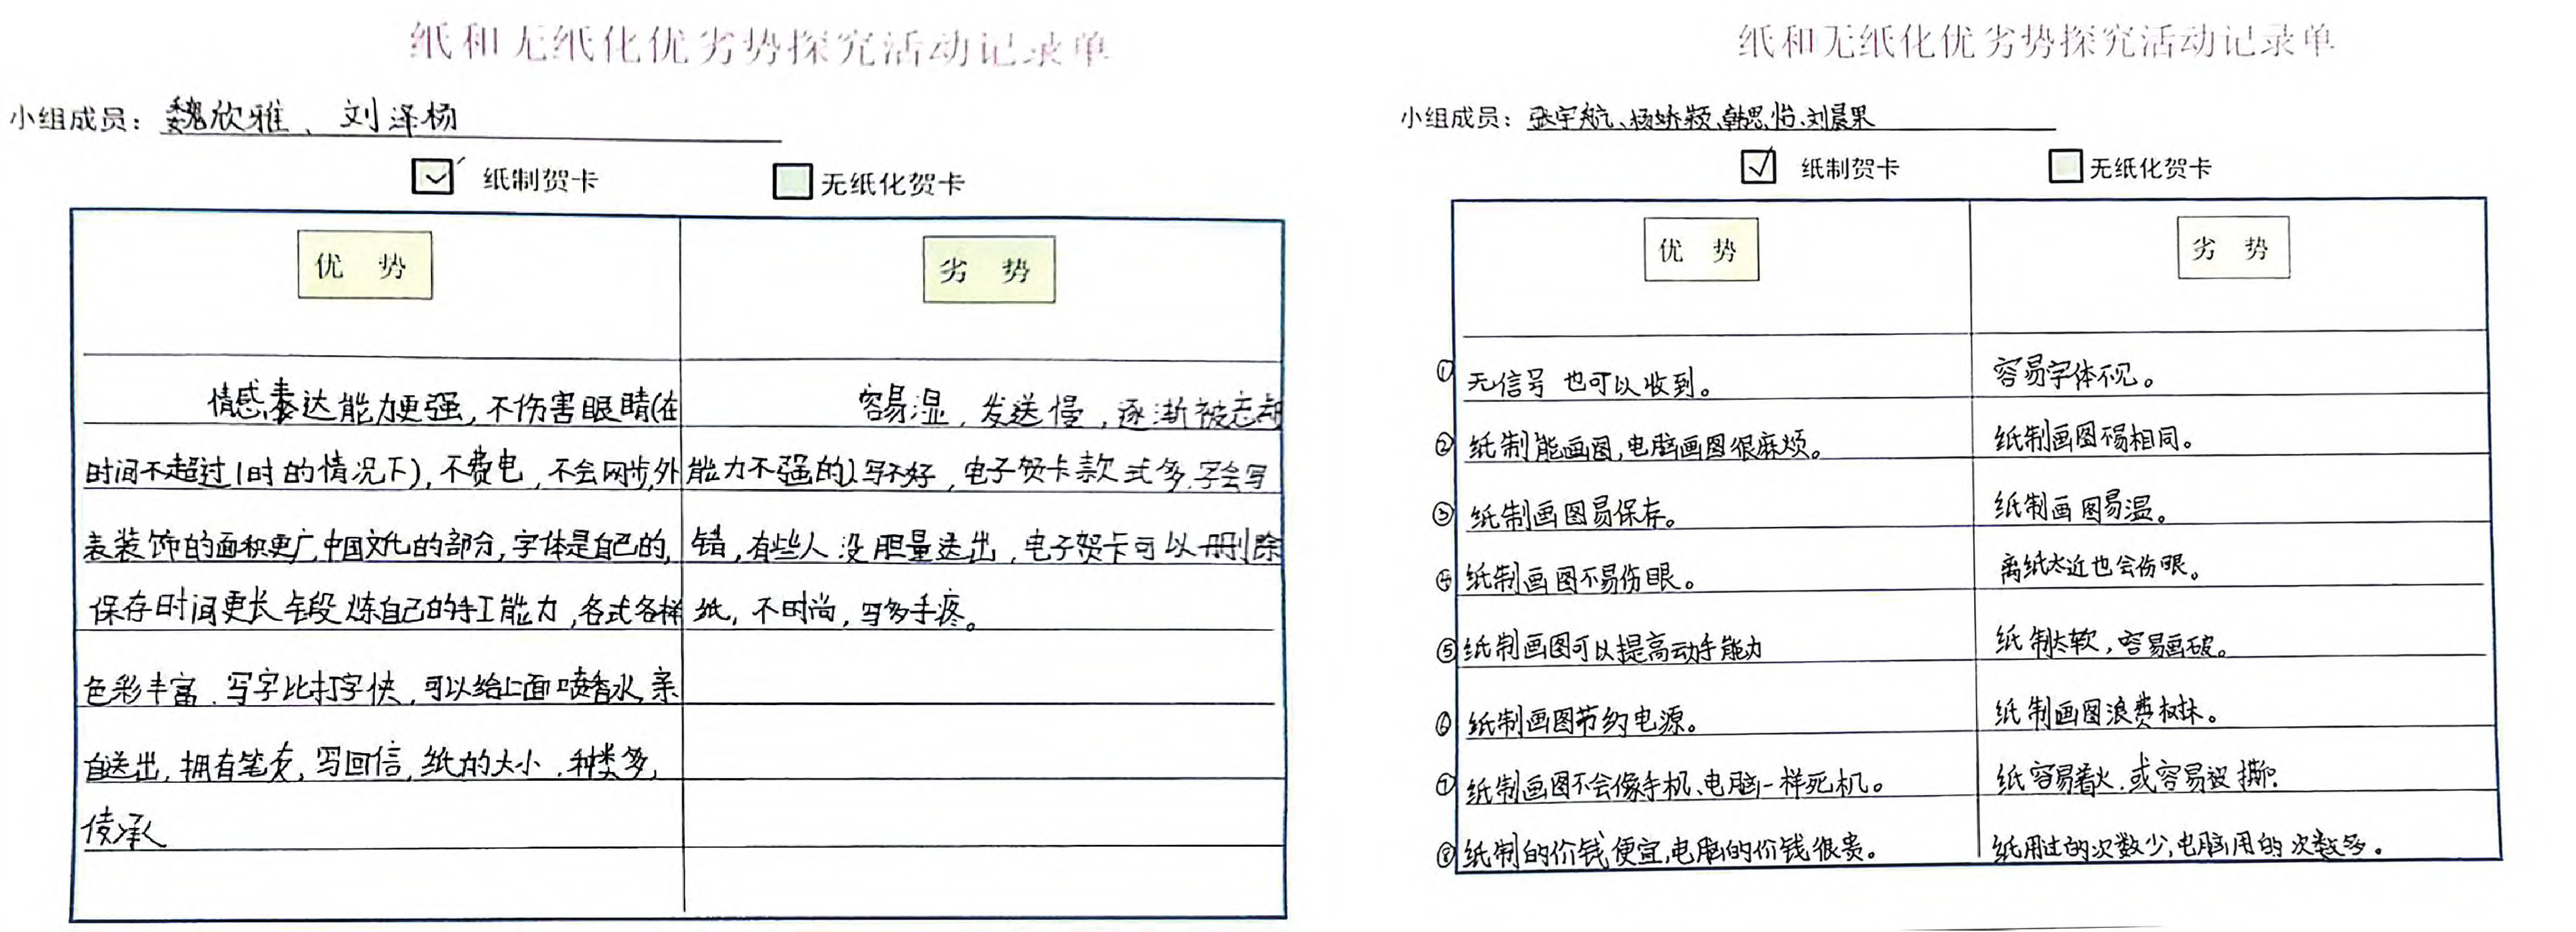 纸和无纸化优劣势探究活动记录单
小组成员：魏欣雅、刘泽杨
纸制贺卡 无纸化贺卡
优 势
情感表达能力更强，不伤害眼睛(在
时间不超过1时的情况下)，不费电，不会网步，外
表装饰的面积更广，中国文化的部分，字体是自己的，
保存时间更长 锻炼自己的手工能力，各式各样
色彩丰富，写字比打字快，可以给上面喷香水，亲
自送出，拥有笔友，写回信，纸的大小，种类多，
传承
劣 势
容易湿，发送慢，逐渐被忘却
能力不强的人写不好，电子贺卡款式多，字会写
错，有些人没胆量送出，电子贺卡可以删除
纸，不时尚，写多手疼。
纸和无纸化优劣势探究活动记录单
小组成员：张宇航、杨娇颖、韩思怡、刘晨果
纸制贺卡 无纸化贺卡
优 势 劣 势
① 无信号也可以收到。 容易字体不见。
② 纸制能画图，电脑画图很麻烦。 纸制画图不易相同。
③ 纸制画图易保存。 纸制画图易湿。
④ 纸制画图不易伤眼。 离纸太近也会伤眼。
⑤ 纸制画图可以提高动手能力 纸制太软，容易画破。
⑥ 纸制画图节约电源。 纸制画图浪费树木。
⑦ 纸制画图不会像手机、电脑一样死机。 纸容易着火，或容易被撕。
⑧ 纸制的价钱便宜，电脑的价钱很贵。 纸用过的次数少，电脑用的次数多。